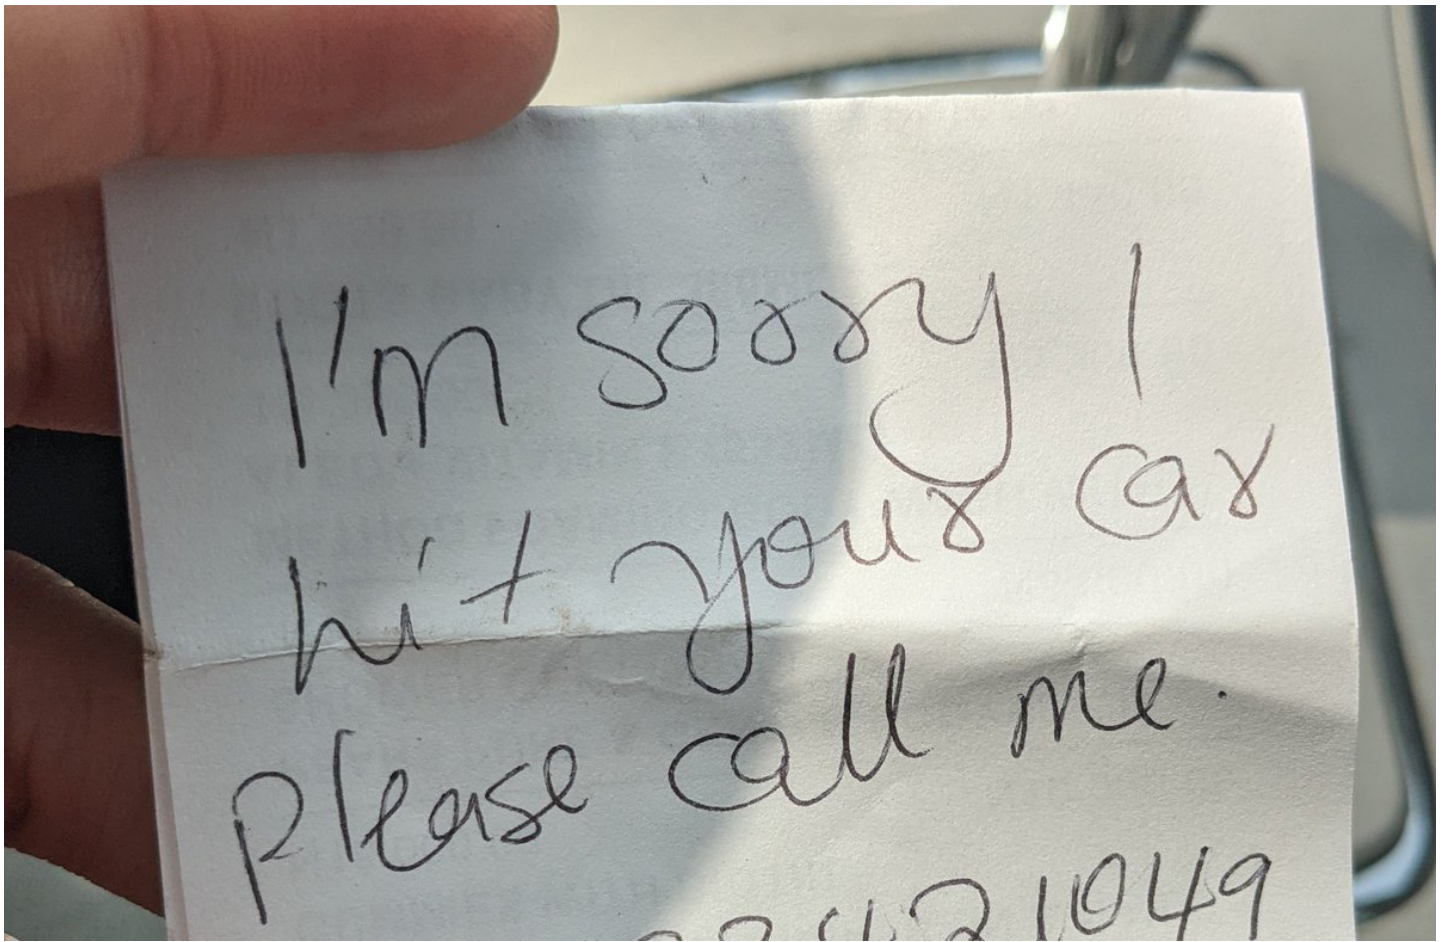 I'm sorry I
hit your car
please call me.